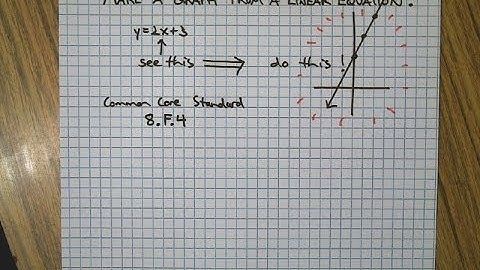 MAKE A GRAPH FROM A LINEAR EQUATION.
y=2x+3
see this do this!
Common Core Standard
8.F.4